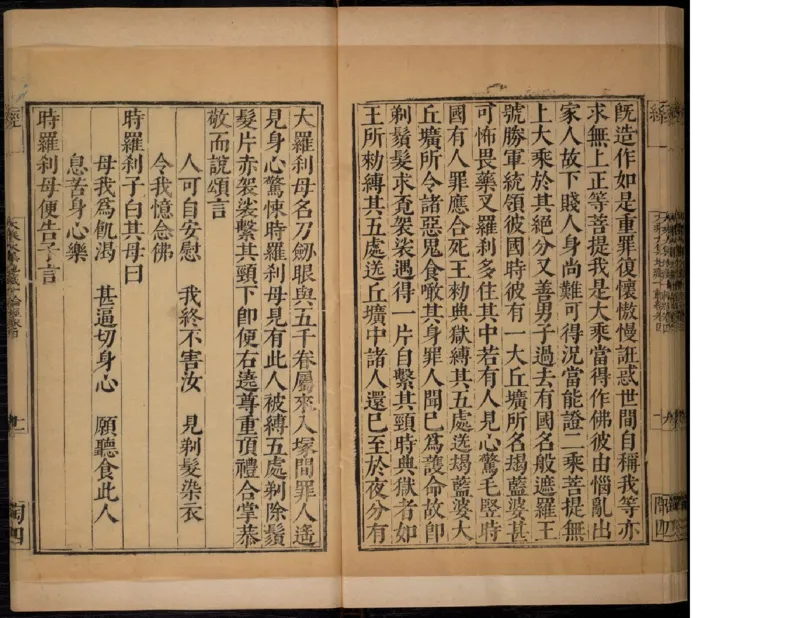 既造作如是重罪復懷慠慢誑惑世間自稱我等亦
求無上正等菩提我是大乘當得作佛彼由惱亂出
家人故下賤人身尚難可得況當能證二乘菩提無
上大乘於其絕分又善男子過去有國名般遮羅王
號勝軍統領彼國時彼有一大丘壙所名朅藍婆甚
可怖畏藥叉羅剎多住其中若有人見心驚毛竪時
國有人罪應合死王勑典獄縛其五處送朅藍婆大
丘壙所令諸惡鬼食噉其身罪人聞已為護命故即
剃鬚髮求覓袈裟遇得一片自繫其頸時典獄者如
王所勑縛其五處送丘壙中諸人還已至於夜分有
大羅剎母名刀劒眼與五千眷屬來入塚間罪人遙
見身心驚悚時羅剎母見有此人被縛五處剃除鬚
髮片赤袈裟繫其頸下即便右遶尊重頂禮合掌恭
敬而說頌言
人可自安慰 我終不害汝 見剃髮染衣
令我憶念佛
時羅剎子白其母曰
母我為飢渴 甚逼切身心 願聽食此人
息苦身心樂
時羅剎母便告子言
經
陶四